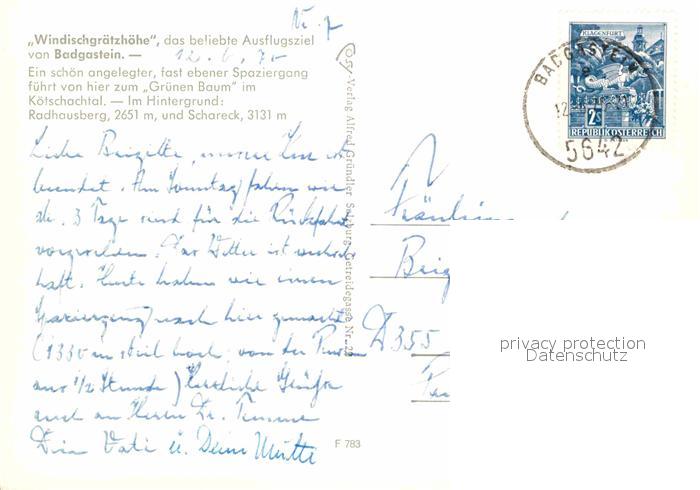 Nr. 7
„Windischgrätzhöhe", das beliebte Ausflugsziel
von Badgastein. —
12.6.70
Ein schön angelegter, fast ebener Spaziergang
führt von hier zum „Grünen Baum" im
Kötschachtal. — Im Hintergrund:
Radhausberg, 2651 m, und Schareck, 3131 m
Liebe Brigitte, unsere Kur ist
beendet. Am Sonntag fahren wir
ab. 3 Tage sind für die Rückfahrt
vorgesehen. Das Wetter ist
haft. Heute haben wir einen
Spaziergang nach hier gemacht
(1330 m steil hoch, von der
aus 1/2 Stunde) Herzliche Grüße
auch an Herrn Dr.
Dein Vati u. Deine Mutti
Cosy-Verlag Alfred Gründler, Salzburg, Getreidegasse Nr. 22
F 783
KLAGENFURT
2S
REPUBLIK ÖSTERREICH
BADGASTEIN
5642
Fräulein
Brig
D 355
privacy protection
Datenschutz